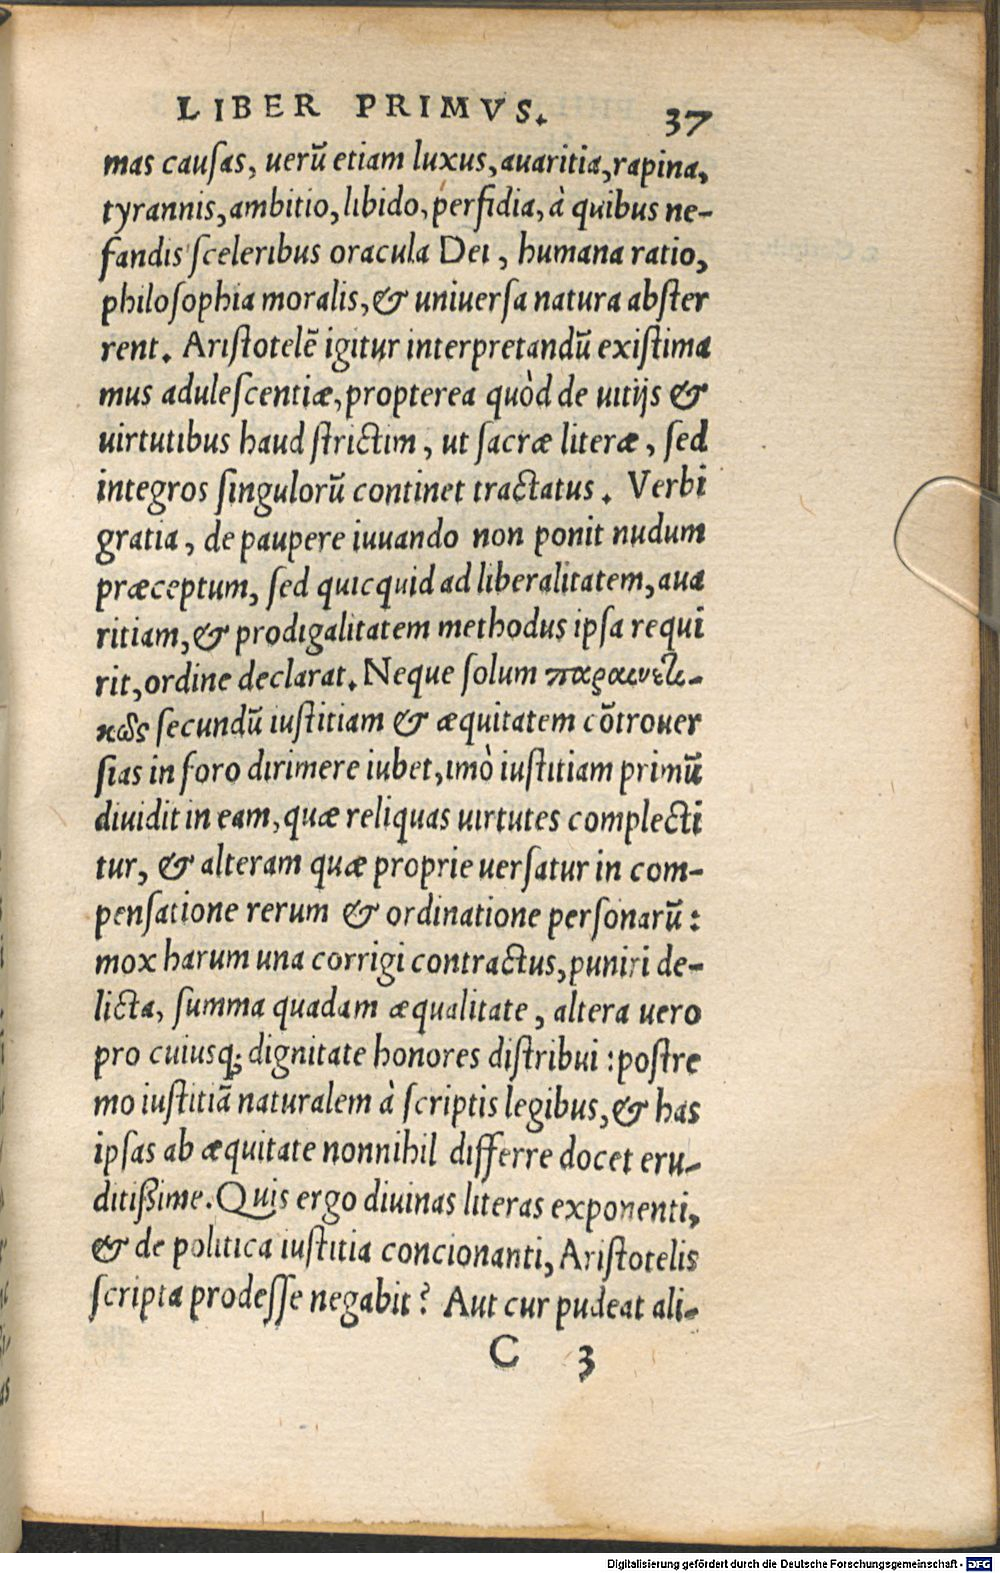 LIBER PRIMVS. 37
mas causas, uerũ etiam luxus, auaritia, rapina,
tyrannis, ambitio, libido, perfidia, à quibus ne-
fandis sceleribus oracula Dei, humana ratio,
philosophia moralis, & uniuersa natura abster
rent. Aristotelẽ igitur interpretandũ existima
mus adulescentiæ, propterea quòd de uitijs &
uirtutibus haud strictim, ut sacræ literæ, sed
integros singulorũ continet tractatus. Verbi
gratia, de paupere iuuando non ponit nudum
præceptum, sed quicquid ad liberalitatem, aua
ritiam, & prodigalitatem methodus ipsa requi
rit, ordine declarat. Neque solum παραινετι-
κῶς secundũ iustitiam & æquitatem cõtrouer
sias in foro dirimere iubet, imò iustitiam primũ
diuidit in eam, quæ reliquas uirtutes complecti
tur, & alteram quæ proprie uersatur in com-
pensatione rerum & ordinatione personarũ:
mox harum una corrigi contractus, puniri de-
licta, summa quadam æqualitate, altera uero
pro cuiusq; dignitate honores distribui: postre
mo iustitiã naturalem à scriptis legibus, & has
ipsas ab æquitate nonnihil differre docet eru-
ditißime. Quis ergo diuinas literas exponenti,
& de politica iustitia concionanti, Aristotelis
scripta prodesse negabit? Aut cur pudeat ali-
C 3
Digitalisierung gefördert durch die Deutsche Forschungsgemeinschaft - DFG